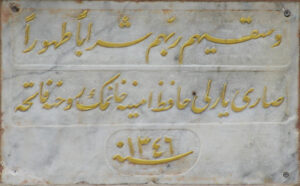 وسقيهم ربهم شراباً طهوراً
صاری یارلی حافظ امینه خانمك روحنه فاتحه
سنه ١٣٤٦